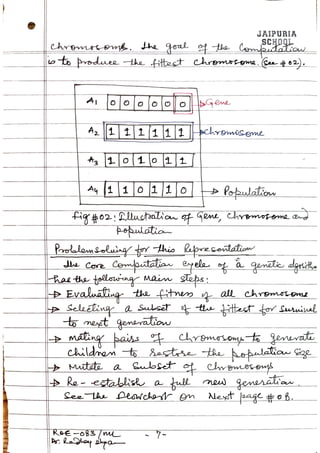 JAIPURIA
SCHOOL
chromosome. The goal of the Computation
is to produce the fittest chromosome. (See #02).
A1 0 0 0 0 0 0 Gene
A2 1 1 1 1 1 1 chromosome
A3 1 0 1 0 1 1
A4 1 1 0 1 1 0 Population
fig #02: Illustration of Gene, Chromosome and
population
Problem solving for this Representation
The Core Computation cycle of a genetic algorithm
has the following main steps:
Evaluating the fitness of all chromosome
Selecting a subset of the fittest for survival
to next generation
mating pairs of chromosome to generate
children to restore the population size
Mutate a subset of chromosomes
Re-establish a full new generation.
See the flowchart on Next page #08.
-7-
Dr.